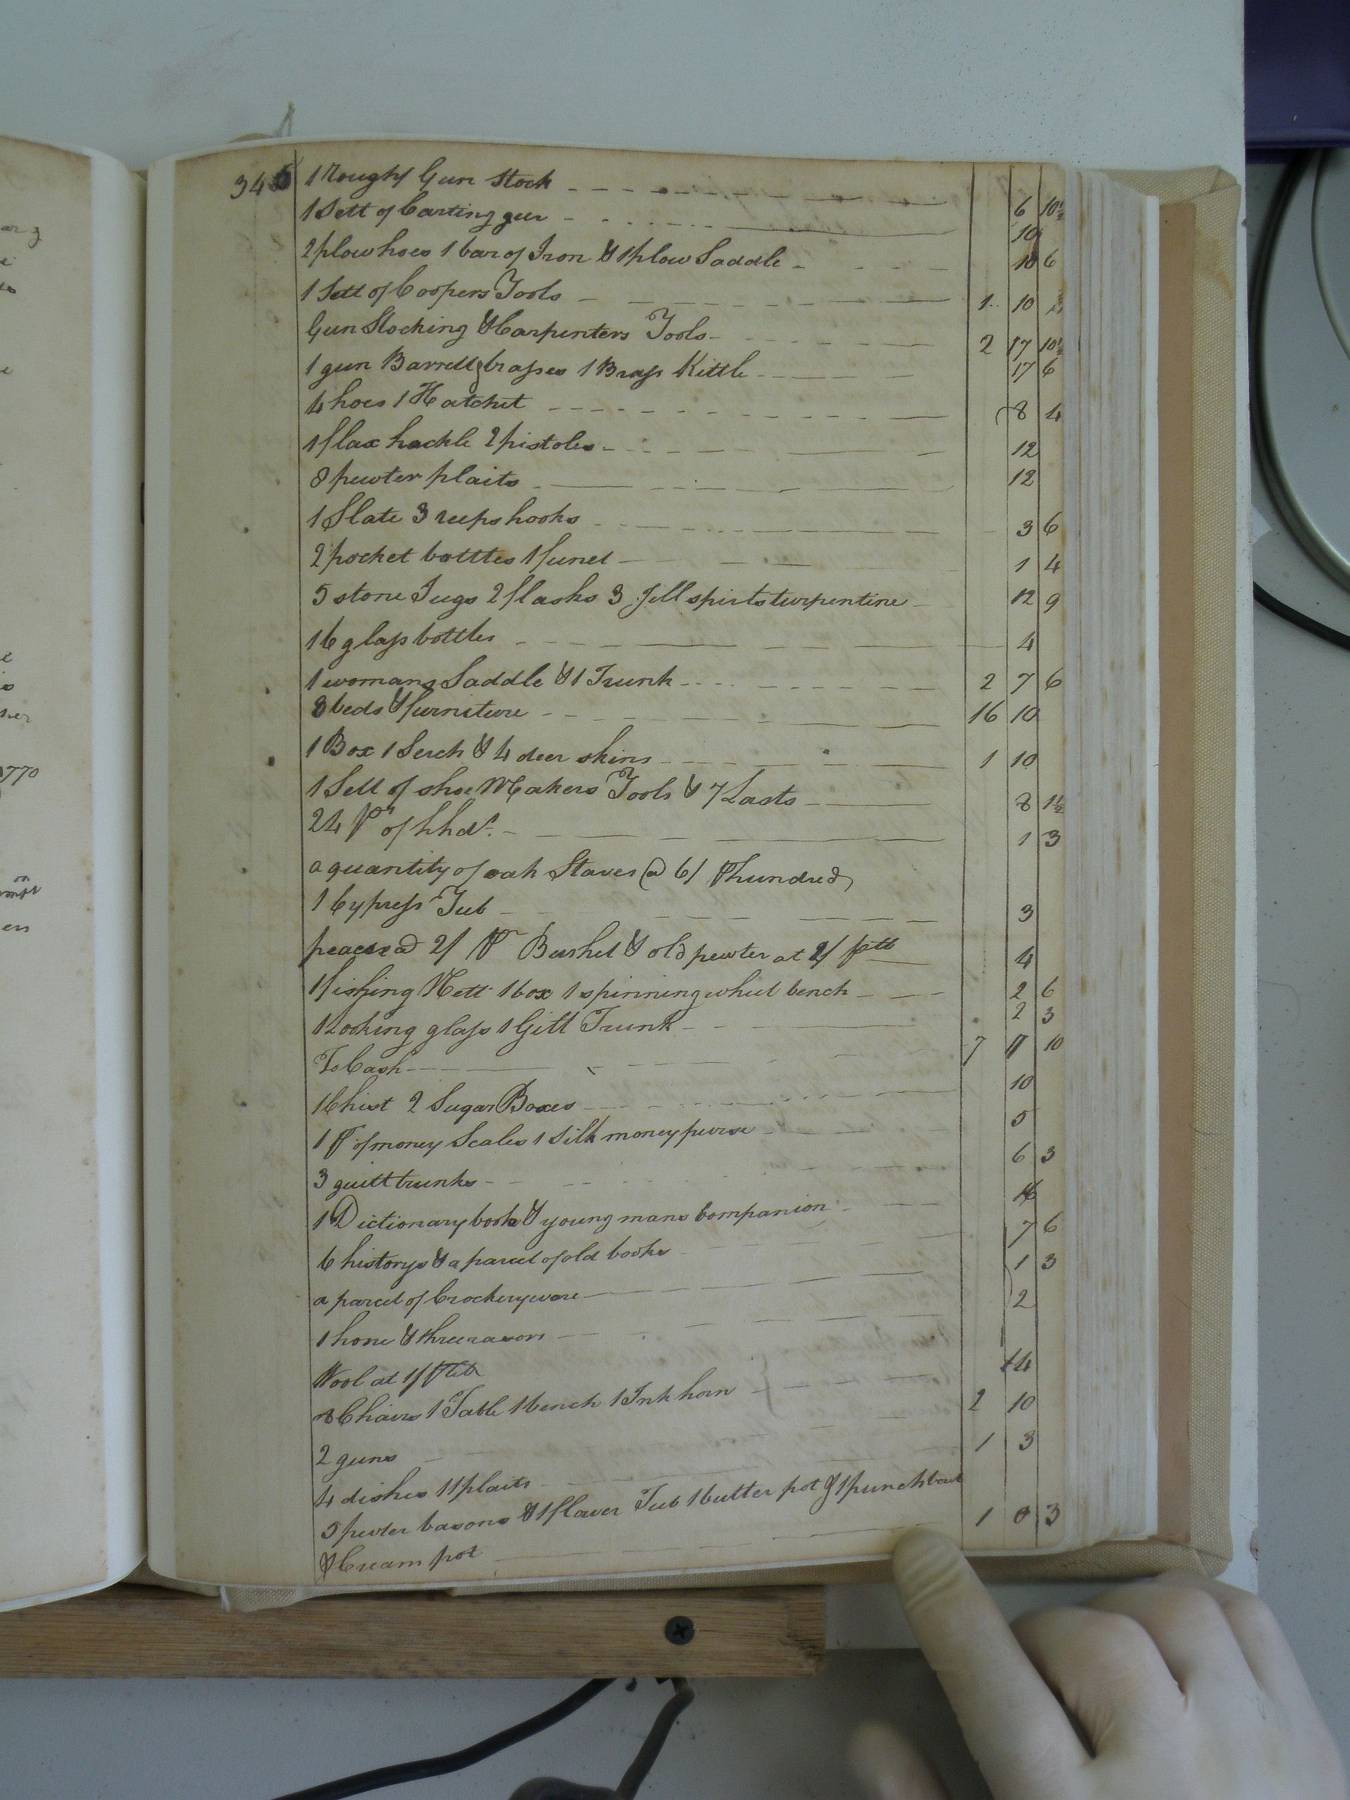 345 1 Rough Gun Stock
1 Sett of Carting geer 6 10½
10
2 plow hoes 1 bar of Iron & 1 plow Saddle 10 6
1 Sett of Coopers Tools 1 10
Gun Stocking & Carpenters Tools 2 17 10½
1 gun Barrell brasses 1 Brass Kittle 17 6
4 hoes 1 Hatchet 8 4
1 flax hackle 2 pistoles 12
8 pewter plaits 12
1 Slate 3 reeps hooks 3 6
2 pocket bottles 1 funel 1 4
5 stone Jugs 2 flasks 3 Jill spirts turpentine 12 9
16 glass bottles 4
1 womans Saddle & 1 Trunk 2 7 6
3 beds & furniture 16 10
1 Box 1 Serch & 4 deer skins 1 10
1 Sett of shoe Makers Tools & 7 Lasts 8 1½
24 lb of hhds. 1 3
a quantity of oak Staves @ 6/ P hundred
1 Cypress Tub 3
peaces @ 2/ P Bushel & old pewter at 2/ P lb 4
1 fishing Nett 1 box 1 spinning wheel bench 2 6
1 Looking glass 1 Gilt Trunk 2 3
To Cash 7 11 10
1 Chist 2 Sugar Boxes 10
1 Pr of money Scales 1 silk money purse 5
3 guilt trunks 6 3
1 Dictionary book & young mans Companion 16
6 historys & a parcel of old books 7 6
a parcel of Crockeryware 1 3
1 hone & three razors 2
Wool at 1/ P lb
8 Chairs 1 Table 1 bench 1 Ink horn 14
2 guns 2 10
4 dishes 11 plaits 1 3
5 pewter basons & 1 flower Tub 1 butter pot & 1 punch bowl
& Cream pot 1 0 3
1770